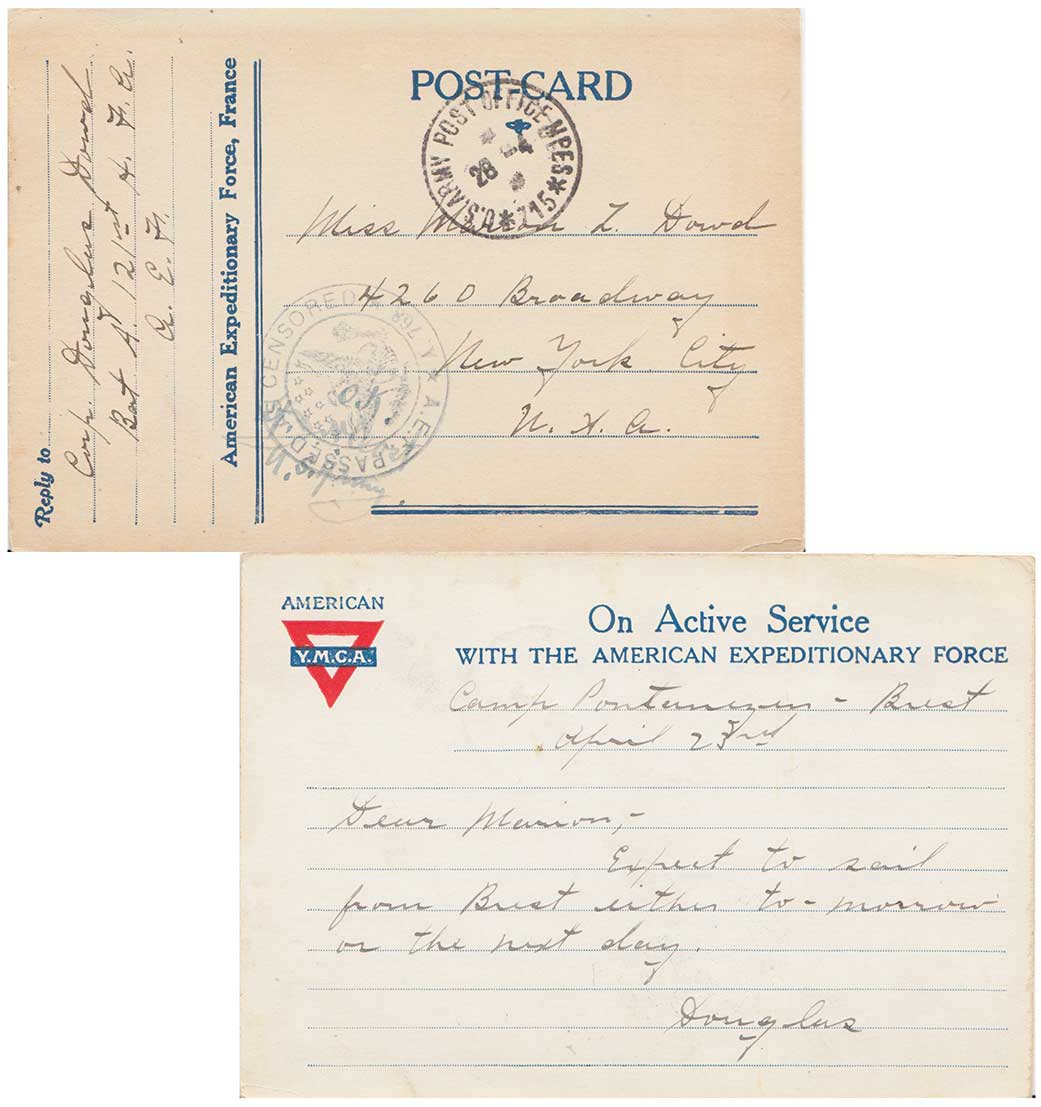 POST-CARD
U.S. ARMY POST OFFICE M.P.E.S. * 715 *
28 4
Miss Marion L. Dowd
4260 Broadway
New York City
U. S. A.
A.E.F. PASSED AS CENSORED
O.K.
American Expeditionary Force, France
Reply to
Corp. Douglas Dowd
Bat A, 121st H. F. A.
A. E. F.
AMERICAN
Y.M.C.A.
On Active Service
WITH THE AMERICAN EXPEDITIONARY FORCE
Camp Pontanezen - Brest
April 23rd
Dear Marion,-
Expect to sail
from Brest either to-morrow
or the next day.
Douglas